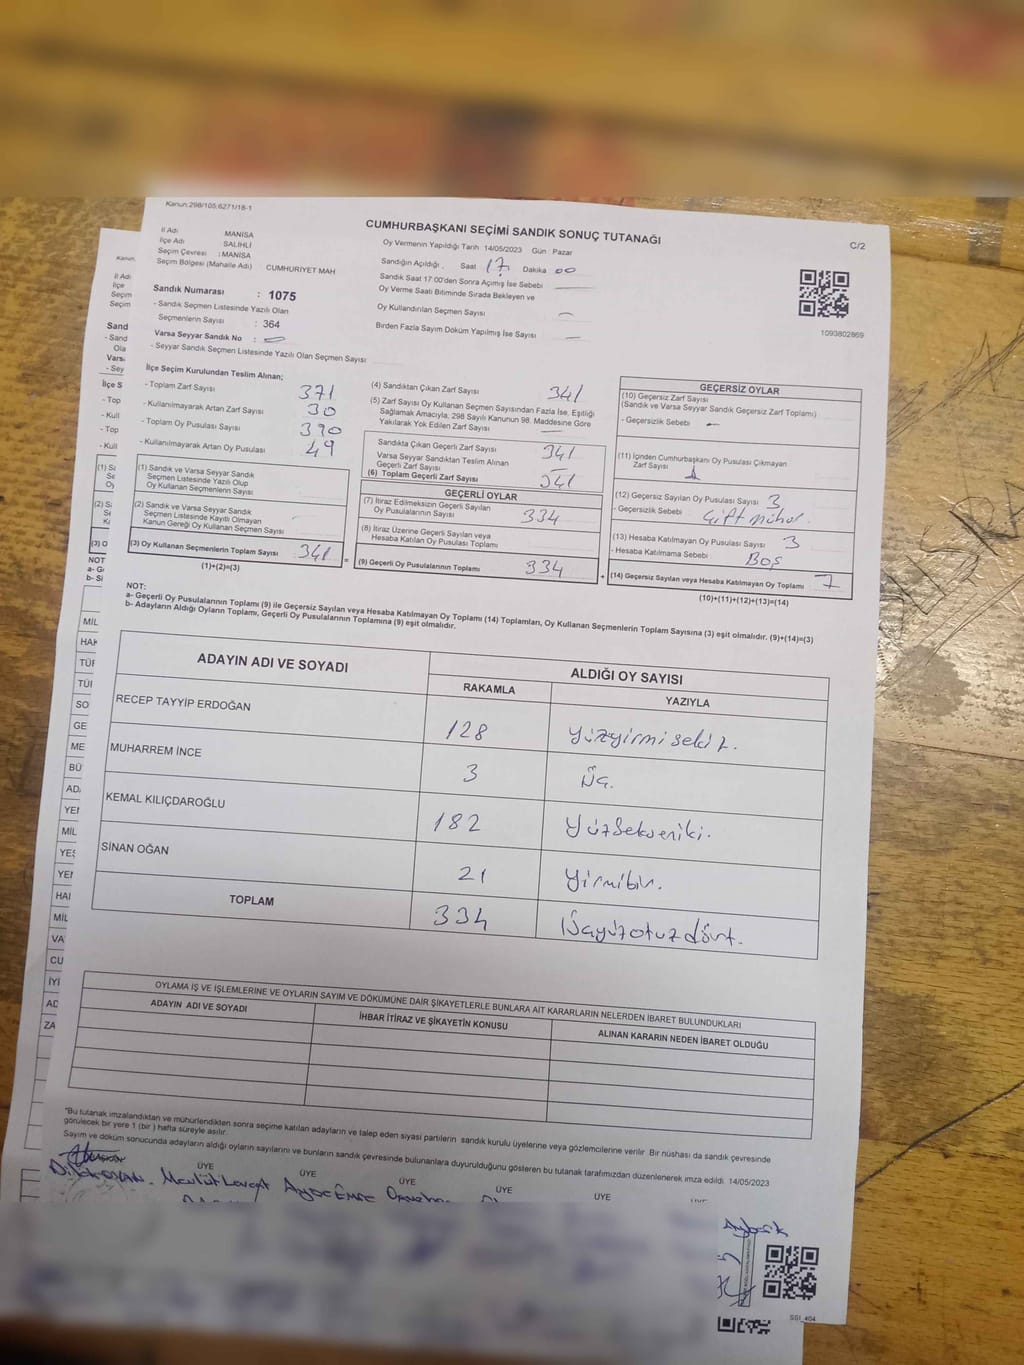 Kanun:298/105:6271/18-1
CUMHURBAŞKANI SEÇİMİ SANDIK SONUÇ TUTANAĞI
C/2
İl Adı : MANİSA
İlçe Adı : SALİHLİ
Seçim Çevresi : MANİSA
Seçim Bölgesi (Mahalle Adı) CUMHURİYET MAH
Oy Vermenin Yapıldığı Tarih 14/05/2023 Gün Pazar
Sandığın Açıldığı, Saat 17 Dakika 00
Sandık Saat 17:00'den Sonra Açımış İse Sebebi
Oy Verme Saati Bitiminde Sırada Bekleyen ve
Oy Kullandırılan Seçmen Sayısı
Birden Fazla Sayım Döküm Yapılmış İse Sayısı
1093802869
Sandık Numarası : 1075
- Sandık Seçmen Listesinde Yazılı Olan
Seçmenlerin Sayısı : 364
Varsa Seyyar Sandık No :
- Seyyar Sandık Seçmen Listesinde Yazılı Olan Seçmen Sayısı
İlçe Seçim Kurulundan Teslim Alınan;
- Toplam Zarf Sayısı 371
- Kullanılmayarak Artan Zarf Sayısı 30
- Toplam Oy Pusulası Sayısı 390
- Kullanılmayarak Artan Oy Pusulası 49
(1) Sandık ve Varsa Seyyar Sandık
Seçmen Listesinde Yazılı Olup
Oy Kullanan Seçmenlerin Sayısı
(2) Sandık ve Varsa Seyyar Sandık
Seçmen Listesinde Kayıtlı Olmayan
Kanun Gereği Oy Kullanan Seçmen Sayısı
(3) Oy Kullanan Seçmenlerin Toplam Sayısı 341 =
(1)+(2)=(3)
(4) Sandıktan Çıkan Zarf Sayısı 341
(5) Zarf Sayısı Oy Kullanan Seçmen Sayısından Fazla İse, Eşitliği
Sağlamak Amacıyla, 298 Sayılı Kanunun 98. Maddesine Göre
Yakılarak Yok Edilen Zarf Sayısı
Sandıkta Çıkan Geçerli Zarf Sayısı 341
Varsa Seyyar Sandıktan Teslim Alınan
Geçerli Zarf Sayısı
(6) Toplam Geçerli Zarf Sayısı 341
GEÇERLİ OYLAR
(7) İtiraz Edilmeksizin Geçerli Sayılan
Oy Pusulalarının Sayısı 334
(8) İtiraz Üzerine Geçerli Sayılan veya
Hesaba Katılan Oy Pusulası Toplamı
(9) Geçerli Oy Pusulalarının Toplamı 334 +
GEÇERSİZ OYLAR
(10) Geçersiz Zarf Sayısı
(Sandık ve Varsa Seyyar Sandık Geçersiz Zarf Toplamı)
- Geçersizlik Sebebi
(11) İçinden Cumhurbaşkanı Oy Pusulası Çıkmayan
Zarf Sayısı 1
(12) Geçersiz Sayılan Oy Pusulası Sayısı 3
- Geçersizlik Sebebi Çift mühür
(13) Hesaba Katılmayan Oy Pusulası Sayısı 3
- Hesaba Katılmama Sebebi Boş
(14) Geçersiz Sayılan veya Hesaba Katılmayan Oy Toplamı 7
(10)+(11)+(12)+(13)=(14)
NOT:
a- Geçerli Oy Pusulalarının Toplamı (9) ile Geçersiz Sayılan veya Hesaba Katılmayan Oy Toplamı (14) Toplamları, Oy Kullanan Seçmenlerin Toplam Sayısına (3) eşit olmalıdır. (9)+(14)=(3)
b- Adayların Aldığı Oyların Toplamı, Geçerli Oy Pusulalarının Toplamına (9) eşit olmalıdır.
ADAYIN ADI VE SOYADI
ALDIĞI OY SAYISI
RAKAMLA YAZIYLA
RECEP TAYYİP ERDOĞAN 128 Yüzyirmisekiz.
MUHARREM İNCE 3 Üç.
KEMAL KILIÇDAROĞLU 182 Yüzsekseniki.
SİNAN OĞAN 21 Yirmibir.
TOPLAM 334 Üçyüzotuzdört.
OYLAMA İŞ VE İŞLEMLERİNE VE OYLARIN SAYIM VE DÖKÜMÜNE DAİR ŞİKAYETLERLE BUNLARA AİT KARARLARIN NELERDEN İBARET BULUNDUKLARI
ADAYIN ADI VE SOYADI
İHBAR İTİRAZ VE ŞİKAYETİN KONUSU
ALINAN KARARIN NEDEN İBARET OLDUĞU
"Bu tutanak imzalandıktan ve mühürlendikten sonra seçime katılan adayların ve talep eden siyasi partilerin sandık kurulu üyelerine veya gözlemcilerine verilir. Bir nüshası da sandık çevresinde
görülecek bir yere 1 (bir) hafta süreyle asılır.
Sayım ve döküm sonucunda adayların aldığı oyların sayılarını ve bunların sandık çevresinde bulunanlara duyurulduğunu gösteren bu tutanak tarafımızdan düzenlenerek imza edildi. 14/05/2023
ÜYE ÜYE ÜYE ÜYE ÜYE
SSI_404